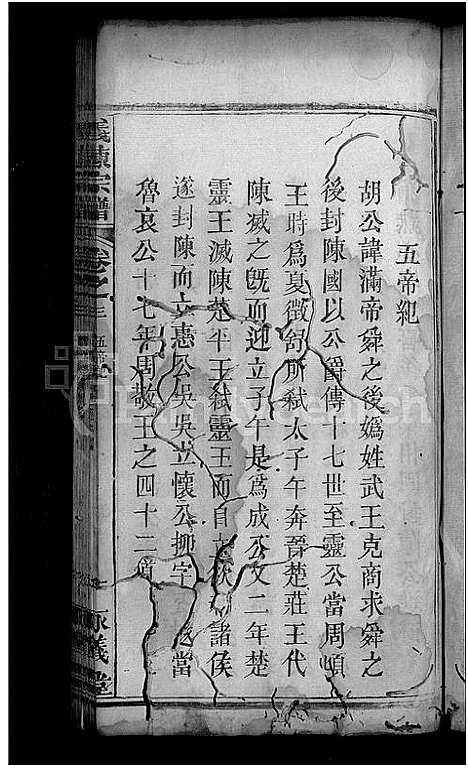 五帝紀
胡公諱滿帝舜之後嬀姓武王克商求舜之
後封陳國以公爵傳十七世至靈公當周頃
王時爲夏徵舒所弑太子午奔晉楚莊王代
陳滅之旣而迎立子午是爲成公又二年楚
靈王滅陳楚平王弑靈王而自立 諸侯
遂封陳而立惠公吳吳立懷公柳字 當
魯哀公十七年周敬王之四十二
義陳宗譜
卷之
三
義堂